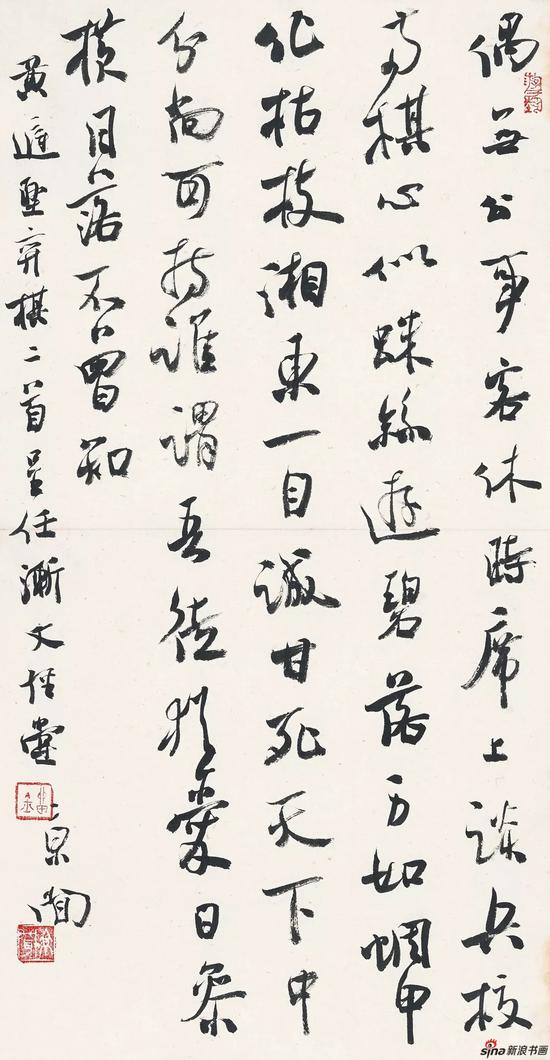 偶無公事客休時席上談兵校
兩棋心似蛛絲遊碧落身如蜩甲
化枯枝湘東一目誠甘死天下中
分尚可持誰謂吾徒猶愛日參
橫月落不曾知
黄庭堅弈棋二首呈任漸文
sina新浪书画